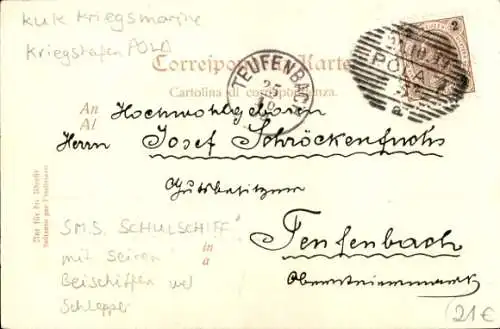 kuk Kriegsmarine
Kriegshafen POLA
Correspondenz-Karte
Cartolina di corrispondenza.
TEUFENBACH
25
10
2
21 10 99
POLA 1
2 S
a
An
Al
Hochwohlgeboren
Herrn Josef Schröckenfuchs
Gutsbesitzer
in
a
Teufenbach
Obersteiermark
Nur für die Adresse
Soltanto per l'indirizzo
SMS. SCHULSCHIFF"
mit seinen
Beischiffen und
Schlepper
21€